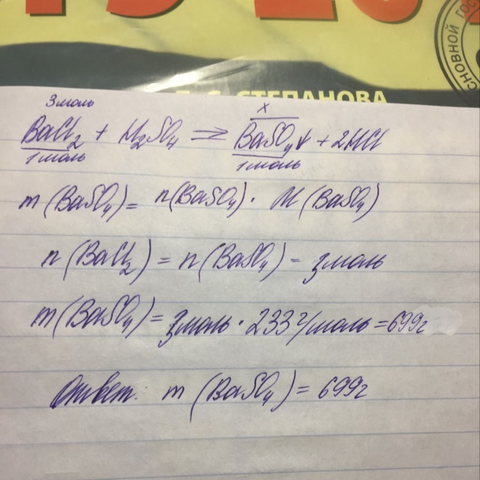 Е. С. СТЕПАНОВА
ОСНОВНОЙ ГОС
3 моль x
BaCl₂ + H₂SO₄ = BaSO₄↓ + 2HCl
1 моль 1 моль
m(BaSO₄) = n(BaSO₄) · M(BaSO₄)
n(BaCl₂) = n(BaSO₄) = 3 моль
m(BaSO₄) = 3 моль · 233 г/моль = 699 г
Ответ: m(BaSO₄) = 699 г